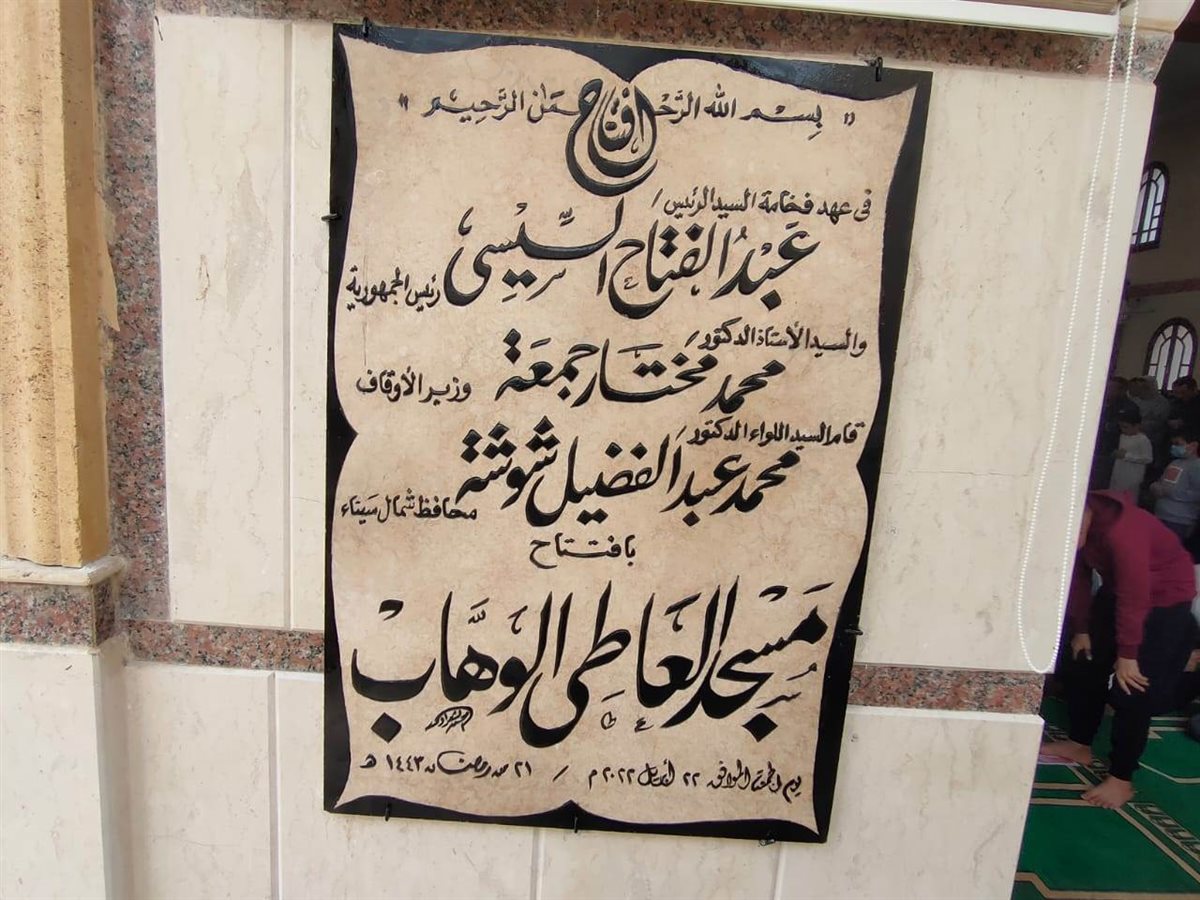 " بسم الله الرَّحمَان الرَّحِيم "
افتتاح
فى عهد فخامة السيد الرئيس /
عَبْدُ الفتاح السِّيسِى رئيس الجمهورية
والسيد الأستاذ الدكتور /
محمد مختار جمعَة وزير الأوقاف
قام السيد اللواء الدكتور /
محمد عبد الفضيل شوشة محافظ شمال سيناء
بافتتاح
مَسْجد العَاطِى الوَهَّاب
يوم الجمعة الموافق ٢٢ أبريل ٢٠٢٢ م / ٢١ من رمضان ١٤٤٣ هـ